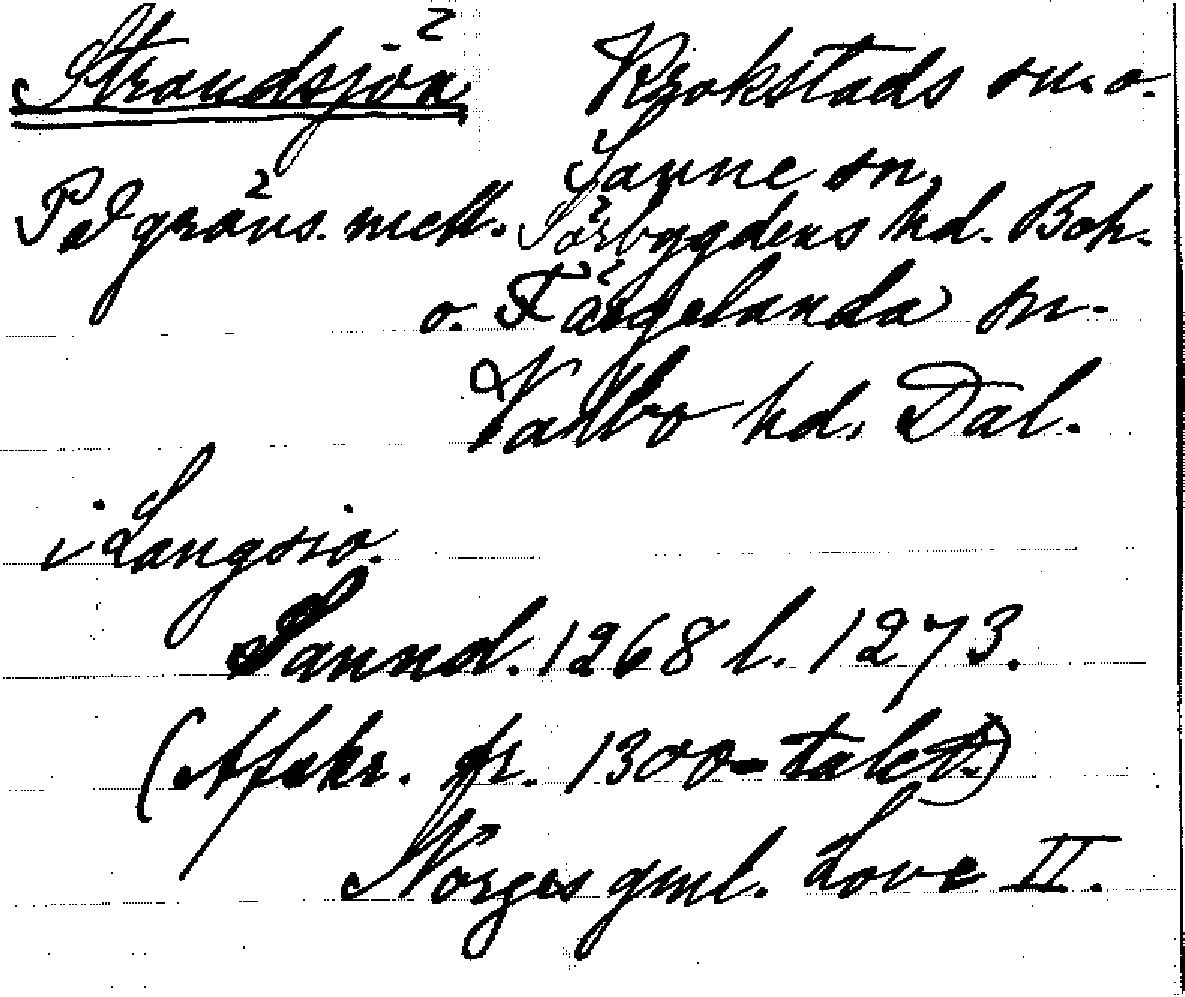 Strandsjön Krokstads sn. o.
Sanne sn.
På gräns. mell. Sörbygdens hd. Boh.
o. Färgelanda sn.
Valbo hd. Dal.
i Langsio.
Sannd. 1268 l. 1273.
(Afskr. fr. 1300-talet.)
Norges gml. Love II.